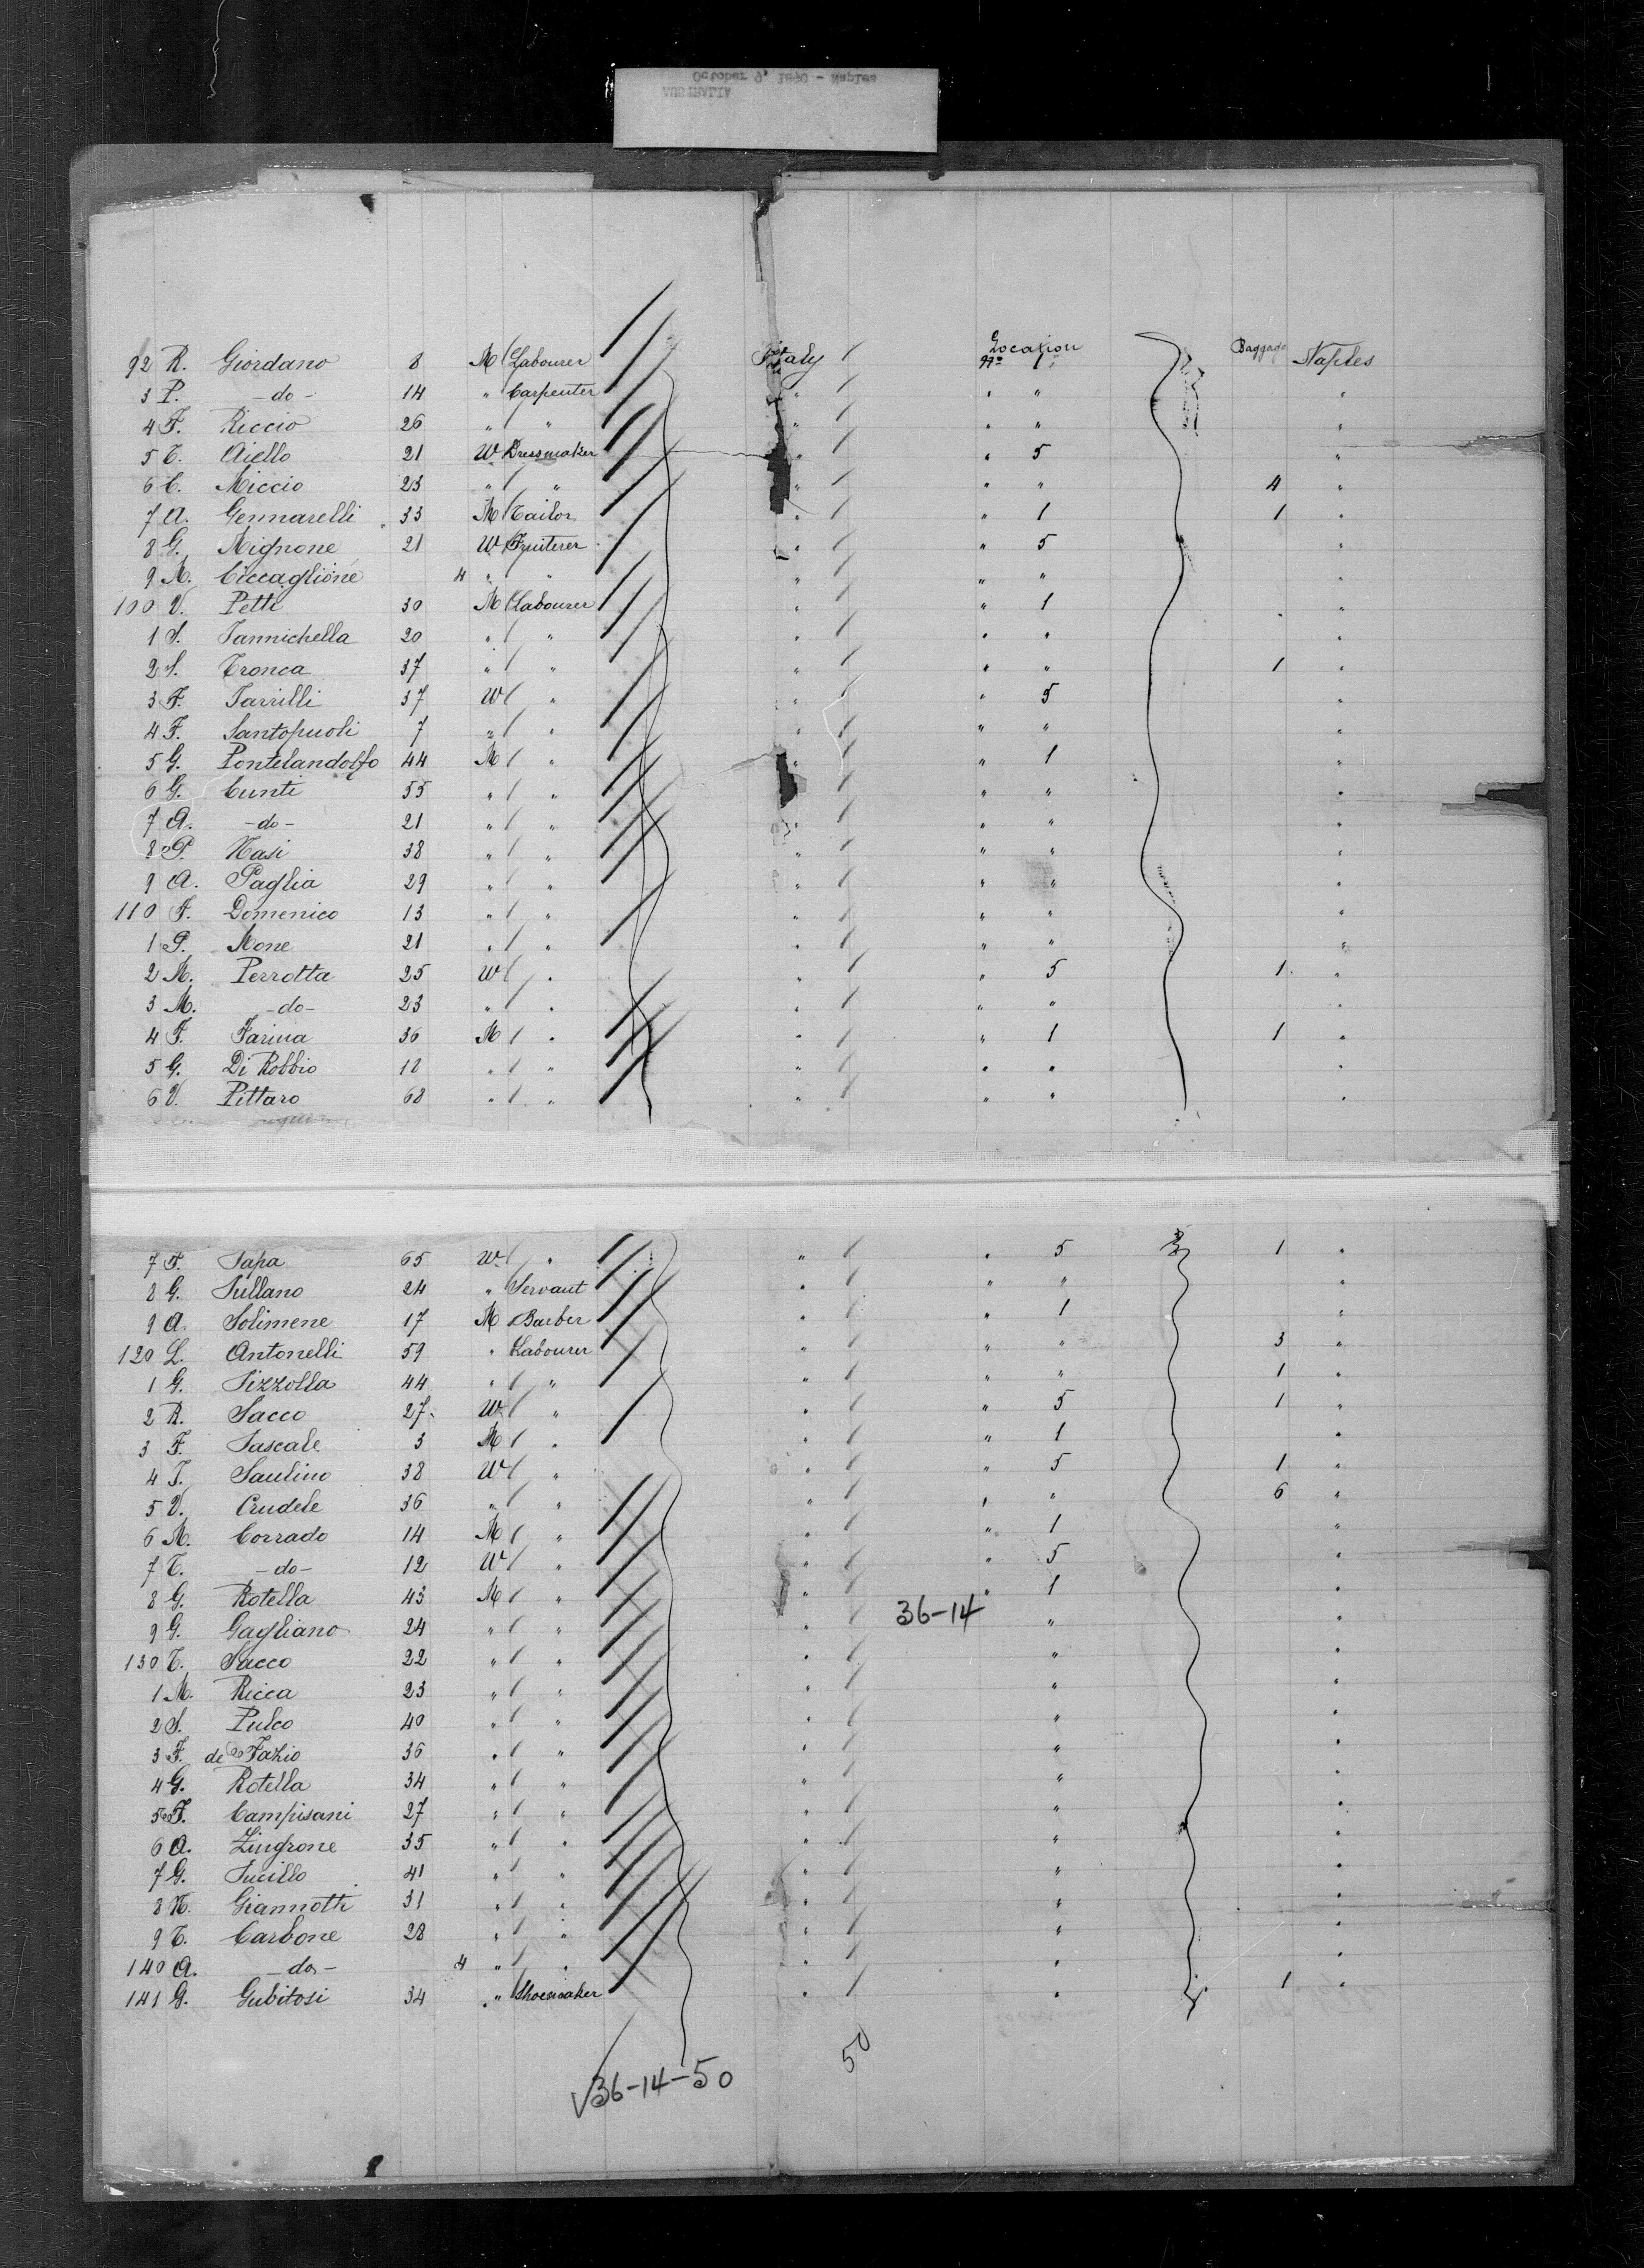 October 9, 1890 - Naples
AUSTRALIA
Location Baggage
92 R. Giordano 8 M Labourer Italy 1 No 1 Naples
3 P. - do - 14 " Carpenter " 1 " " "
4 F. Riccio 26 " " " 1 " " "
5 T. Aiello 21 W Dressmaker " 1 " 5 "
6 C. Miccio 23 " " " 1 " " 4 "
7 A. Gennarelli 33 M Tailor " 1 " 1 1 "
8 G. Mignone 21 W Fruiterer " 1 " 5 "
9 M. Ciccaglione 4 " " " 1 " " "
100 V. Petti 30 M Labourer " 1 " 1 "
1 S. Iannichella 20 " " " 1 " " "
2 S. Tronca 37 " " " 1 " " 1 "
3 F. Iarrilli 37 W " " 1 " 5 "
4 F. Santopuoli 7 " " " 1 " " "
5 G. Pontelandolfo 44 M " " 1 " 1 "
6 G. Cunti 55 " " " 1 " " "
7 A. - do - 21 " " " 1 " " "
8 P. Nasi 38 " " " 1 " " "
9 A. Paglia 29 " " " 1 " " "
110 F. Domenico 13 " " " 1 " " "
1 P. Mone 21 " " " 1 " " "
2 M. Perrotta 25 W " " 1 " 5 1 "
3 M. - do - 23 " " " 1 " " "
4 F. Farina 36 M " " 1 " 1 1 "
5 G. Di Robbio 18 " " " 1 " " "
6 V. Pittaro 68 " " " 1 " " "
7 F. Papa 65 W " " 1 " 5 1 "
8 G. Sullano 24 " Servant " 1 " " "
9 A. Solimene 17 M Barber " 1 " 1 "
120 L. Antonelli 59 " Labourer " 1 " " 3 "
1 G. Pizzolla 44 " " " 1 " " 1 "
2 R. Sacco 27 W " " 1 " 5 1 "
3 F. Pascale 3 M " " 1 " 1 "
4 T. Saulino 38 W " " 1 " 5 1 "
5 V. Crudele 36 " " " 1 " " 6 "
6 M. Corrado 14 M " " 1 " 1 "
7 T. - do - 12 W " " 1 " 5 "
8 G. Rotella 43 M " " 1 " 1 "
9 G. Gagliano 24 " " " 1 36-14 " "
130 T. Sacco 22 " " " 1 " "
1 M. Ricca 23 " " " 1 " "
2 S. Pulco 40 " " " 1 " "
3 F. de Fazio 36 " " " 1 " "
4 G. Rotella 34 " " " 1 " "
5 F. Campisani 27 " " " 1 " "
6 A. Zingrone 35 " " " 1 " "
7 G. Pucillo 41 " " " 1 " "
8 N. Giannotti 31 " " " 1 " "
9 T. Carbone 28 " " " 1 " "
140 A. - do - 4 " " " 1 " "
141 G. Gubitosi 34 " Shoemaker " 1 " 1 "
50
36-14-50